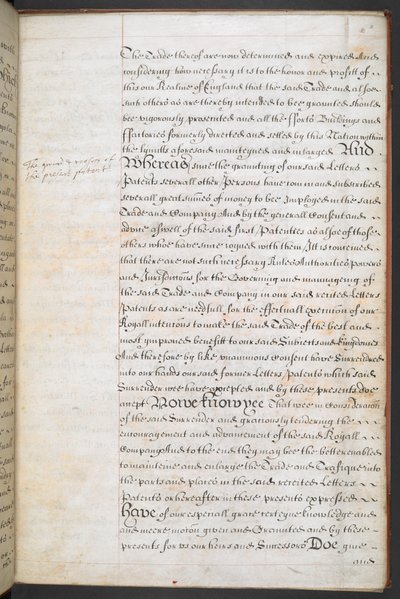 The Trade thereof are now determined and expired And
considering how necessary it is to the honor and profitt of
this our Realme of England that the said Trade and alsoe
such others as are thereby intended to bee graunted should
bee vigorously prosecuted and all the fforts Buildings and
ffactories formerly directed and setled by this Nation within
the lymitts aforesaid mainteyned and enlarged And
Whereas since the graunting of our said Letters
Patents severall other Persons have come in and subscribed
severall great summes of money to bee Imployed in the said
Trade and Company And by the generall Consent and
advice aswell of the said first Patentees as alsoe of those
others whoe have since ioyned with them, Itt is conceived
that there are not such necessary Rules Authorities powers
and Jurisdiccons for the Governing and mannageing of
the said Trade and Company in our said recited Letters
Patents as are needfull for the effectuall execucion of our
Royall intencons to make the said Trade of the best and
most improved benefit to our said Subiects and kingdomes
And therefore by like unanimous Consent have Surrendred
into our hands our said former Letters Patents which said
Surrender wee have accepted and by these presents doe
accept Nowe know yee That wee in Consideracon
of the said Surrender and graciously tendering the
encouragement and advancement of the said Royall
Company And to the end they may bee the better enabled
to mainteine and enlarge the Trade and Trafique into
the parts and places in the said recited Letters
Patents or hereafter in these presents expressed
Have of our especiall grace certeyne knowledge and
and meere mocon given and Graunted and by these
presents for us our heirs and Successors Doe give
and
The ground & reason of
the present patent